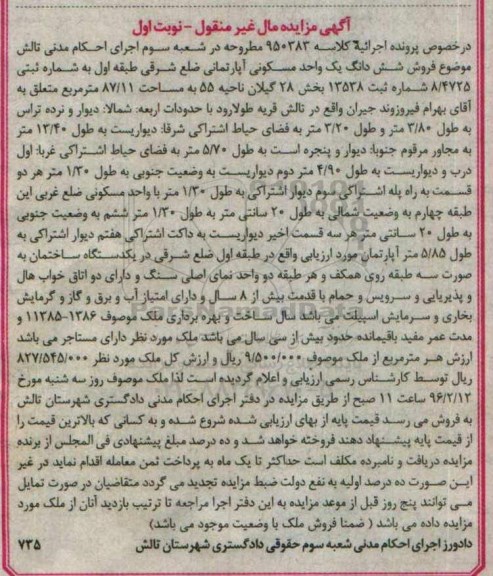 آگهی مزایده مال غیر منقول - نوبت اول
درخصوص پرونده اجرائیه کلاسه ۹۵۰۳۸۳ مطروحه در شعبه سوم اجرای احکام مدنی تالش
موضوع فروش شش دانگ یک واحد مسکونی آپارتمانی ضلع شرقی طبقه اول به شماره ثبتی
۸/۴۷۲۵ شماره ثبت ۱۳۵۳۸ بخش ۲۸ گیلان ناحیه ۵۵ به مساحت ۸۷/۱۱ مترمربع متعلق به
آقای بهرام فیروزوند جیران واقع در تالش قریه طولارود با حدودات اربعه: شمالا: دیوار و نرده تراس
به طول ۳/۸۰ متر و طول ۳/۲۰ متر به فضای حیاط اشتراکی شرقا: دیواریست به طول ۱۳/۴۰ متر
به مجاور مرقوم جنوبا: دیوار و پنجره است به طول ۵/۷۰ متر به فضای حیاط اشتراکی غربا: اول
درب و دیواریست به طول ۴/۹۰ متر دوم دیواریست به وضعیت جنوبی به طول ۱/۳۰ متر هر دو
قسمت به راه پله اشتراکی سوم دیوار اشتراکی به طول ۱/۳۰ متر با واحد مسکونی ضلع غربی این
طبقه چهارم به وضعیت شمالی به طول ۲۰ سانتی متر به طول ۱/۳۰ متر ششم به وضعیت جنوبی
به طول ۲۰ سانتی متر هر سه قسمت اخیر دیواریست به داکت اشتراکی هفتم دیوار اشتراکی به
طول ۵/۸۵ متر آپارتمان مورد ارزیابی واقع در طبقه اول ضلع شرقی در یکدستگاه ساختمان به
صورت سه طبقه روی همکف و هر طبقه دو واحد نمای اصلی سنگ و دارای دو اتاق خواب هال
و پذیریایی و سرویس و حمام با قدمت بیش از ۸ سال و دارای امتیاز آب و برق و گاز و گرمایش
بخاری و سرمایش اسپیلت می باشد سال ساخت و بهره برداری ملک موصوف ۱۳۸۶-۱۱۳۸۵ و
مدت عمر مفید باقیمانده حدود بیش از سی سال می باشد ملک مورد نظر دارای مستاجر می باشد
ارزش هر مترمربع از ملک موصوف ۹/۵۰۰/۰۰۰ ریال و ارزش کل ملک مورد نظر ۸۲۷/۵۴۵/۰۰۰
ریال توسط کارشناس رسمی ارزیابی و اعلام گردیده است لذا ملک موصوف روز سه شنبه مورخ
۹۶/۲/۱۲ ساعت ۱۱ صبح از طریق مزایده در دفتر اجرای احکام مدنی دادگستری شهرستان تالش
به فروش می رسد قیمت پایه از بهای ارزیابی شده شروع شده و به کسانی که بالاترین قیمت را
از قیمت پایه پیشنهاد دهند فروخته خواهد شد و ده درصد مبلغ پیشنهادی فی المجلس از برنده
مزایده دریافت و نامبرده مکلف است حداکثر تا یک ماه به پرداخت ثمن معامله اقدام نماید در غیر
این صورت ده درصد اولیه به نفع دولت ضبط مزایده تجدید می گردد متقاضیان در صورت تمایل
می توانند پنج روز قبل از موعد مزایده به این دفتر اجرا مراجعه تا ترتیب بازدید آنان از ملک مورد
مزایده داده می باشد ( ضمنا فروش ملک با وضعیت موجود می باشد)
دادورز اجرای احکام مدنی شعبه سوم حقوقی دادگستری شهرستان تالش ۷۳۵